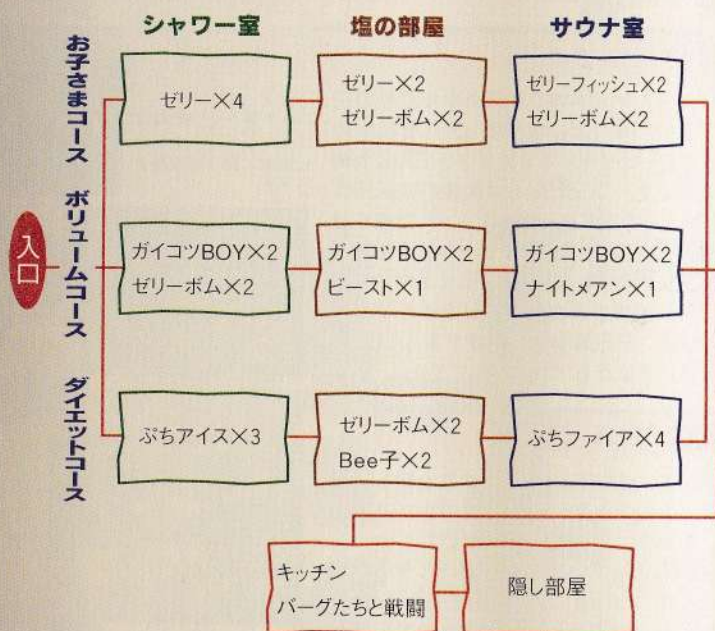 シャワー室
塩の部屋
サウナ室
お子さまコース
ゼリー×4
ゼリー×2
ゼリーボム×2
ゼリーフィッシュ×2
ゼリーボム×2
入口
ボリュームコース
ガイコツBOY×2
ゼリーボム×2
ガイコツBOY×2
ビースト×1
ガイコツBOY×2
ナイトメアン×1
ダイエットコース
ぷちアイス×3
ゼリーボム×2
Bee子×2
ぷちファイア×4
キッチン
バーグたちと戦闘
隠し部屋